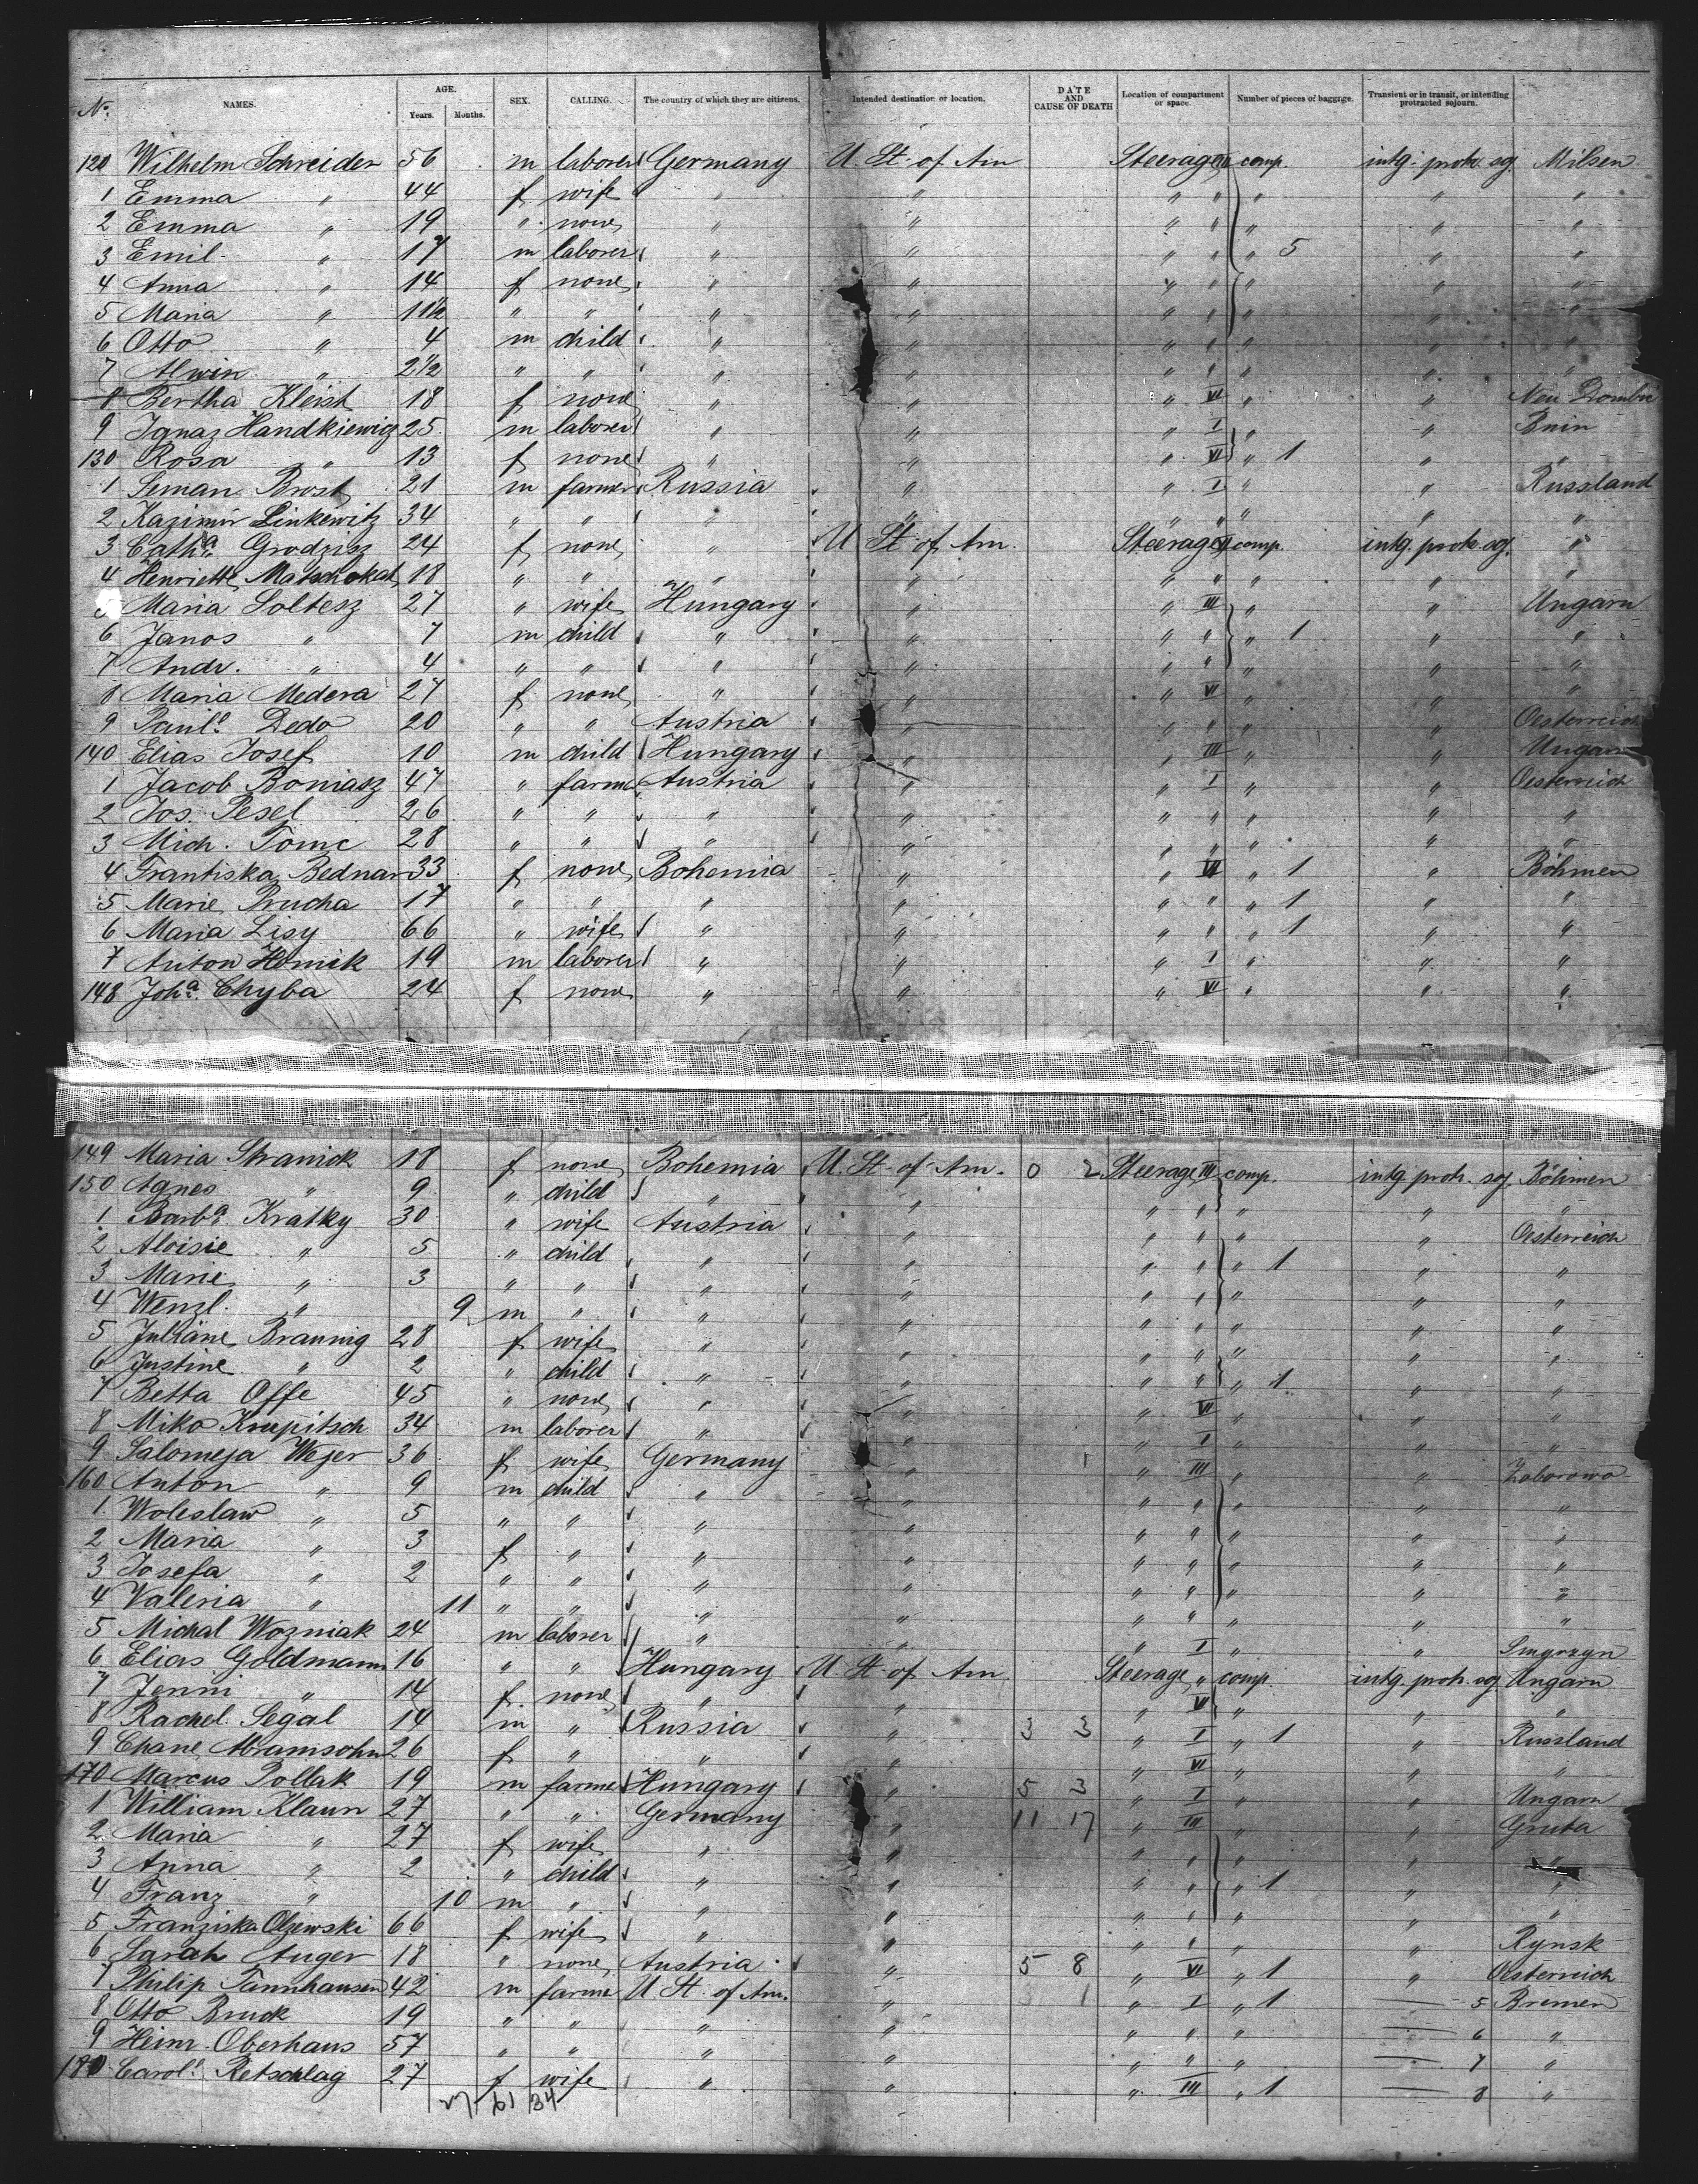 No. NAMES. AGE. Years. Months. SEX. CALLING. The country of which they are citizens. Intended destination or location. DATE AND CAUSE OF DEATH Location of compartment or space. Number of pieces of baggage. Transient or in transit, or intending protracted sojourn.
120 Wilhelm Schreider 56 m laborer Germany U. St. of Am Steerage comp. intg. protr. sg. Milsen
1 Emma " 44 f wife " " " " " " "
2 Emma " 19 " none " " " " " " "
3 Emil " 17 m laborer " " " " " 5 " "
4 Anna " 14 f none " " " " " " "
5 Maria " 11½ " " " " " " " " "
6 Otto " 4 m child " " " " " " "
7 Alwin " 2½ " " " " " " " " "
8 Bertha Kleist 18 f none " " " VI " " Neu Dombie
9 Ignaz Handkiewicz 25 m laborer " " " I " " Bnin
130 Rosa " 13 f none " " " VI " 1 " "
1 Seman Brost 21 m farmer Russia " " I " " Russland
2 Kazimir Linkewitz 34 " " " " " " " " "
3 Catha. Grodzisz 24 f none " U St. of Am. Steerage comp. intg. protr. sg. "
4 Henriette Matschokat 18 " " " " " " " " "
5 Maria Soltesz 27 " wife Hungary " " III " " Ungarn
6 Janos " 7 m child " " " " " 1 " "
7 Andr. " 4 " " " " " " " " "
8 Maria Medera 27 f none " " " VI " " "
9 Paule. Dedo 20 " " Austria " " " " " Oesterreich
140 Elias Josef 10 m child Hungary " " III " " Ungarn
1 Jacob Boniasz 47 " farmer Austria " " I " " Oesterreich
2 Jos. Pesel 26 " " " " " " " " "
3 Mich. Tomc 28 " " " " " " " " "
4 Frantiska Bednar 33 f none Bohemia " " VI " 1 " Böhmen
5 Marie Prucha 17 " " " " " " " 1 " "
6 Maria Lisy 66 " wife " " " " " 1 " "
7 Anton Homik 19 m laborer " " " I " " "
148 Joha. Chyba 24 f none " " " VI " " "
149 Maria Stranick 18 f none Bohemia U. St. of Am. 0 2 Steerage III comp. intg protr. sg. Böhmen
150 Agnes " 9 " child " " " " " " "
1 Barba. Kratky 30 " wife Austria " " " " " Oesterreich
2 Aloisie " 5 " child " " " " " 1 " "
3 Marie " 3 " " " " " " " " "
4 Wenzl. " 9 m " " " " " " " "
5 Juliane Braunig 28 f wife " " " " " " "
6 Justine " 2 " child " " " " " 1 " "
7 Betta Offe 45 " none " " " VI " " "
8 Miko Krupitsch 34 m laborer " " " I " " "
9 Salomeja Wejer 36 f wife Germany " " III " " Zaborowo
160 Anton " 9 m child " " " " " " "
1 Woleslaw " 5 " " " " " " " " "
2 Maria " 3 f " " " " " " " "
3 Josefa " 2 " " " " " " " " "
4 Valeria " 11 " " " " " " " " "
5 Michal Wozniak 24 m laborer " " " I " " Smyrzyn
6 Elias Goldmann 16 " " Hungary U. St. of Am Steerage " comp. intg. protr. sg. Ungarn
7 Jenni " 14 f none " " " VI " " "
8 Rachel Segal 14 m " Russia " 3 3 " I " 1 " Russland
9 Chane Abramsohn 26 f " " " " VI " " "
170 Marcus Pollak 19 m farmer Hungary " 5 3 " I " " Ungarn
1 William Klaun 27 " " Germany " 11 17 " III " " Gruta
2 Maria " 27 f wife " " " " " " "
3 Anna " 2 " child " " " " " 1 " "
4 Franz " 10 m " " " " " " " "
5 Franziska Olzewski 66 f wife " " " " " " Rynsk
6 Sarah Auger 18 " none Austria " 5 8 " VI " 1 " Oesterreich
7 Philip Tannhausen 42 m farmer U St. of Am. " 1 " I " 1 — 5 Bremen
8 Otto Bruck 19 " " " " " " " — 6 "
9 Heinr. Oberhaus 57 " " " " " " " — 7 "
180 Carole. Retschlag 27 f wife " " " III " 1 — 8 "
27 61 34